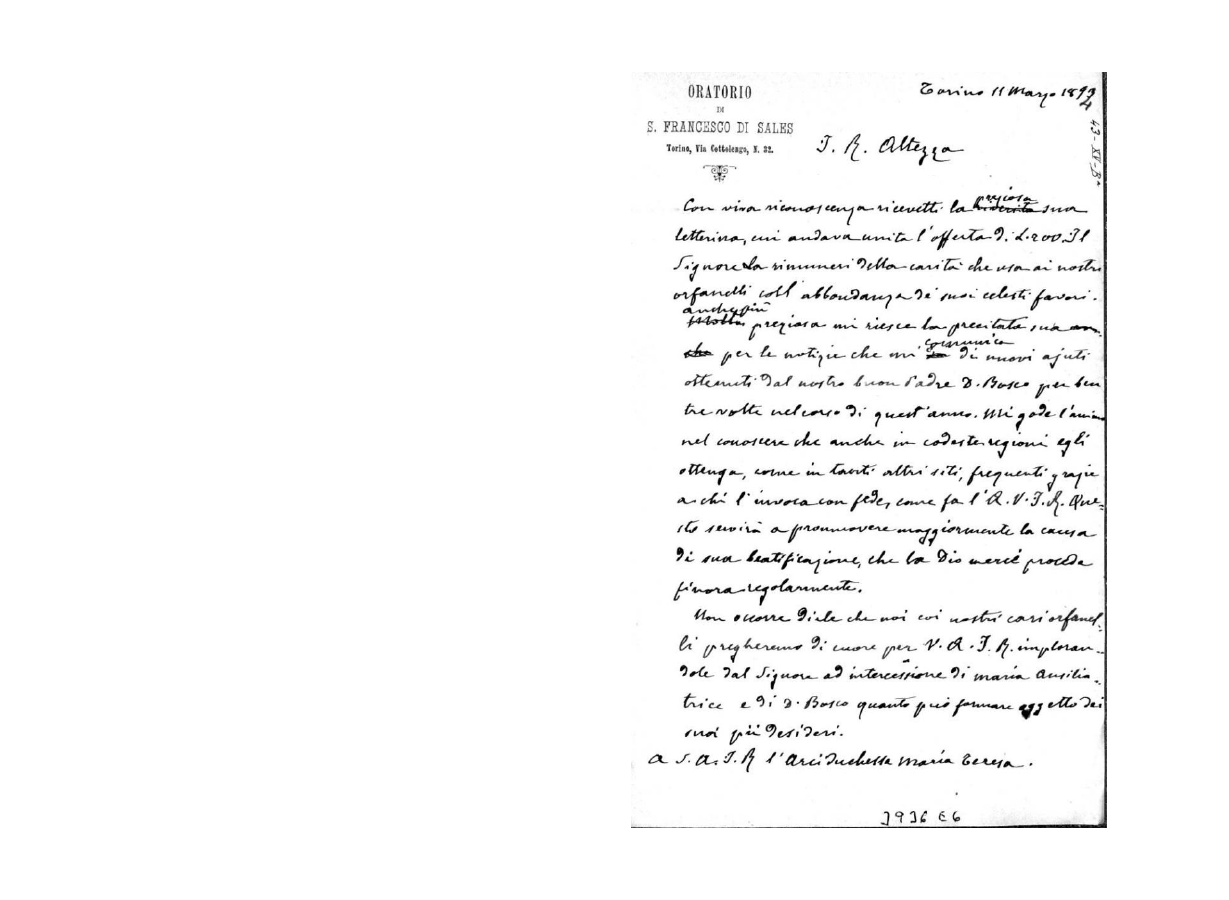 ORATORIO
DI
S. FRANCESCO DI SALES
Torino, Via Cottolengo, N. 32.
Torino 11 Marzo 1893
4
43-XV-B^a
I. R. Altezza
preziosa
Con viva riconoscenza ricevetti la sua
letterina, cui andava unita l'offerta di L. 200. Il
Signore La rimuneri della carità che usa ai nostri
orfanelli coll'abbondanza de' suoi celesti favori.
anche più
Molto preziosa mi riesce la precitata sua an-
comunica
che per le notizie che mi di nuovi ajuti
ottenuti dal nostro buon Padre D. Bosco per ben
tre volte nel corso di quest'anno. Mi gode l'animo
nel conoscere che anche in codeste regioni egli
ottenga, come in tanti altri siti, frequenti grazie
a chi l'invoca con fede, come fa l'A. V. I. R. Que-
sto servirà a promuovere maggiormente la causa
di sua beatificazione, che la Dio mercé procede
finora regolarmente.
Non occorre dirle che noi coi nostri cari orfanel-
li pregheremo di cuore per V. A. I. R. imploran-
dole dal Signore ad intercessione di Maria Ausilia-
trice e di D. Bosco quanto può formare oggetto dei
suoi pii desideri.
A S. A. I. R l'Arciduchessa Maria Teresa.
3936 E6